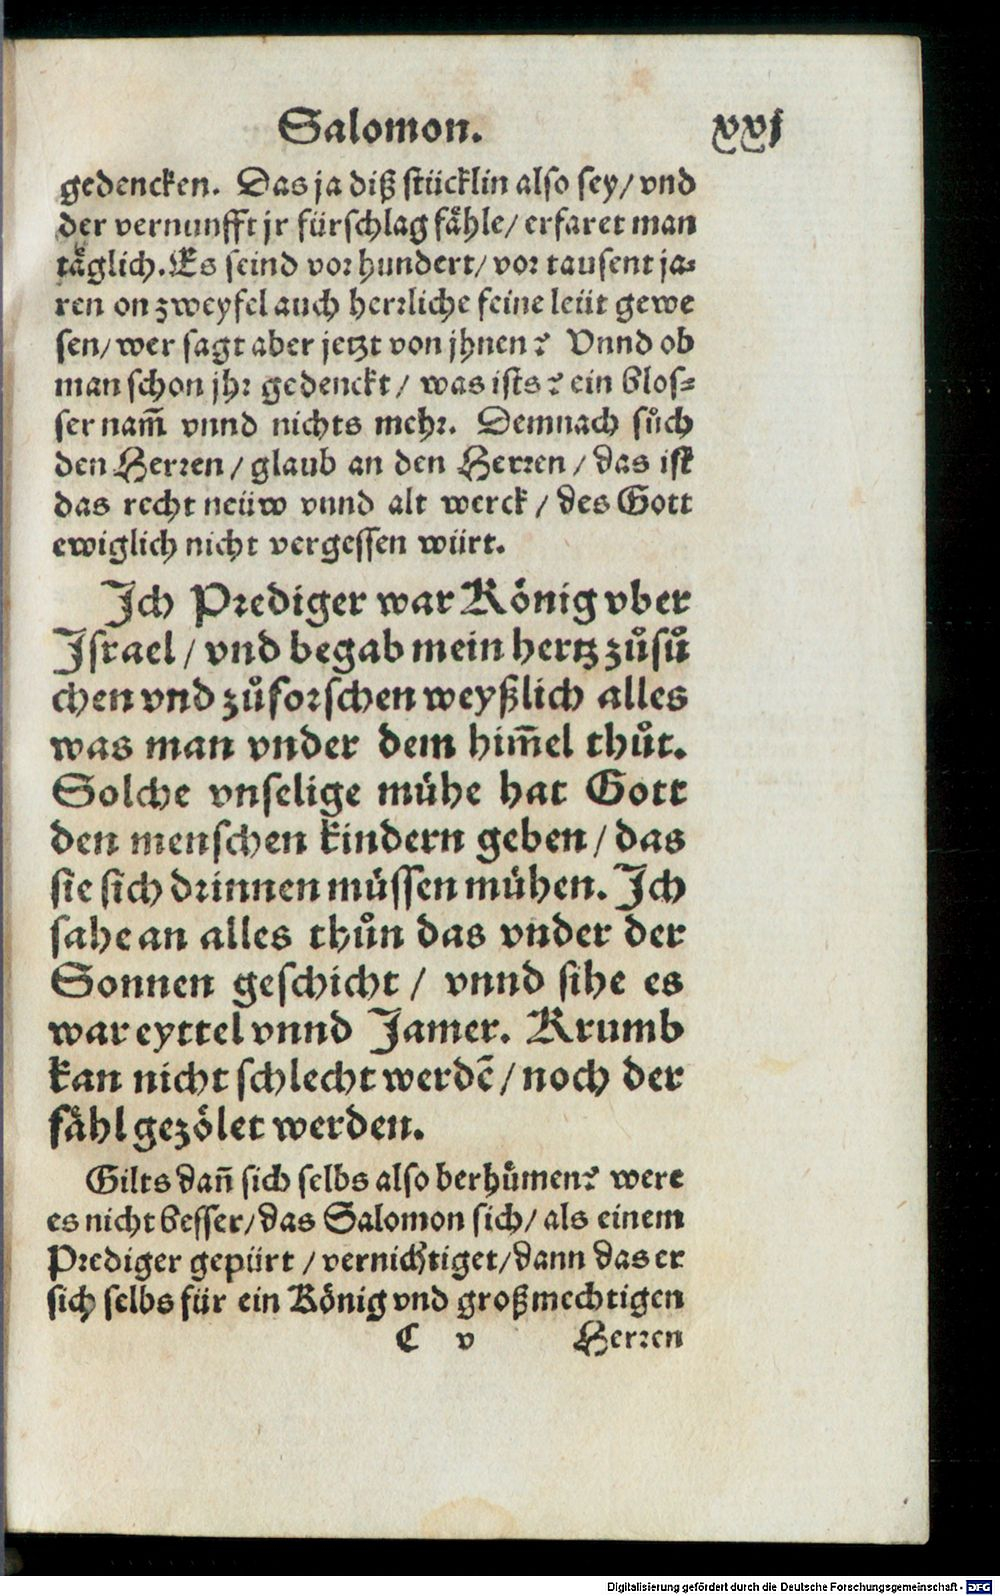 Salomon. xxj
gedencken. Das ja diß stücklin also sey/ vnd
der vernunfft jr fürschlag fåhle/ erfaret man
tåglich. Es seind vor hundert/ vor tausent ja-
ren on zweyfel auch herrliche feine leüt gewe
sen/ wer sagt aber jetzt von jhnen? Vnnd ob
man schon jhr gedenckt/ was ists? ein blos-
ser nam̃ vnnd nichts mehr. Demnach sůch
den Herren/ glaub an den Herren/ das ist
das recht neüw vnnd alt werck/ des Gott
ewiglich nicht vergessen würt.
Jch Prediger war König vber
Jsrael/ vnd begab mein hertz zůsů
chen vnd zůforschen weyßlich alles
was man vnder dem him̃el thůt.
Solche vnselige mühe hat Gott
den menschen kindern geben/ das
sie sich drinnen müssen mühen. Jch
sahe an alles thůn das vnder der
Sonnen geschicht/ vnnd sihe es
war eyttel vnnd Jamer. Krumb
kan nicht schlecht werdẽ/ noch der
fåhl gezölet werden.
Gilts dañ sich selbs also berhůmen? were
es nicht besser/ das Salomon sich/ als einem
Prediger gepürt/ vernichtiget/ dann das er
sich selbs für ein König vnd großmechtigen
C v Herren
Digitalisierung gefördert durch die Deutsche Forschungsgemeinschaft - DFG